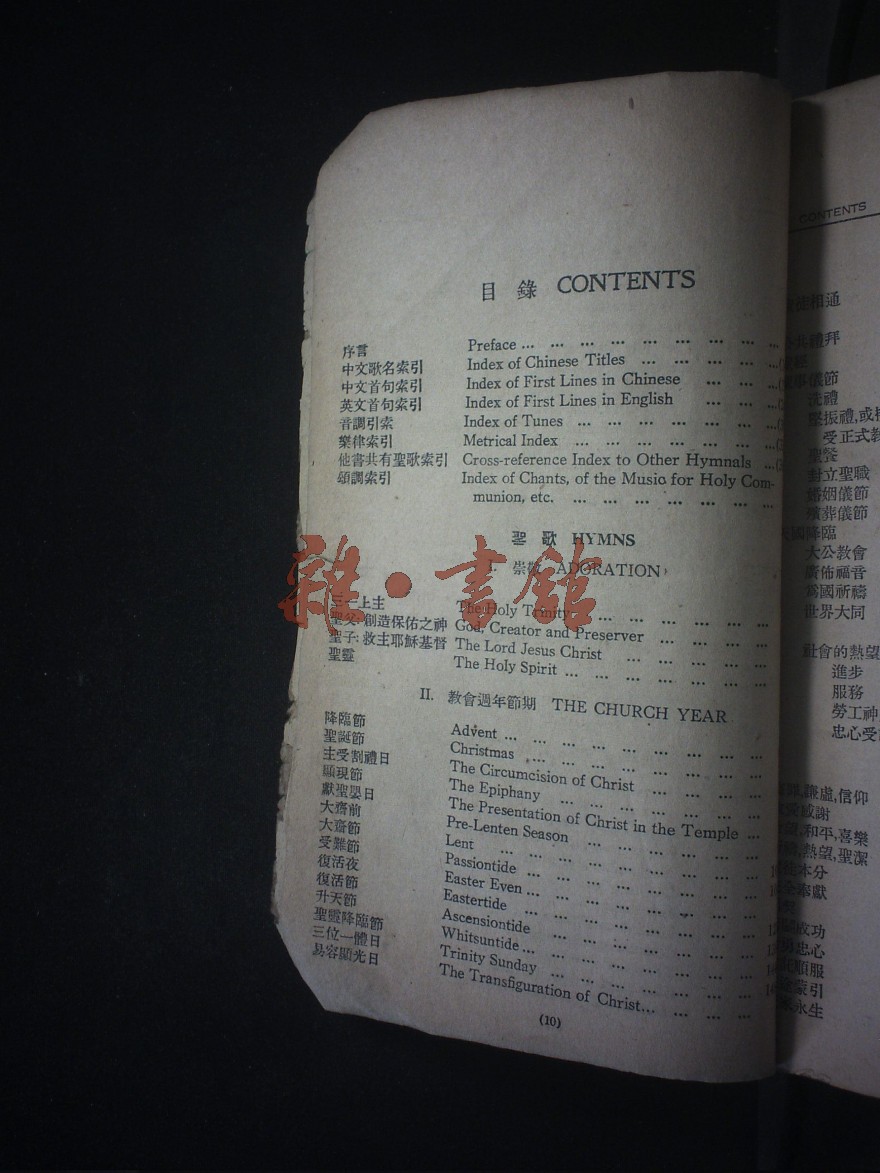 目錄 CONTENTS
序言 Preface ... ... ... ... ... ... ... ...
中文歌名索引 Index of Chinese Titles ... ... ... ...
中文首句索引 Index of First Lines in Chinese ... ...
英文首句索引 Index of First Lines in English ... ...
音調引索 Index of Tunes ... ... ... ... ... ...
樂律索引 Metrical Index ... ... ... ... ... ...
他書共有聖歌索引 Cross-reference Index to Other Hymnals ...
頌調索引 Index of Chants, of the Music for Holy Com-
munion, etc. ... ... ... ... ... ...
聖歌 HYMNS
I. 崇敬 ADORATION
三一上主 The Holy Trinity ... ... ... ... ...
聖父: 創造保佑之神 God, Creator and Preserver ... ... ...
聖子: 救主耶穌基督 The Lord Jesus Christ ... ... ... ...
聖靈 The Holy Spirit ... ... ... ... ...
II. 教會週年節期 THE CHURCH YEAR
降臨節 Advent ... ... ... ... ... ... ... ...
聖誕節 Christmas ... ... ... ... ... ... ...
主受割禮日 The Circumcision of Christ ... ... ... ...
顯現節 The Epiphany ... ... ...
獻聖嬰日 The Presentation of Christ in the Temple ...
大齋前 Pre-Lenten Season ... ... ... ... ...
大齋節 Lent ... ... ... ... ... ... ...
受難節 Passiontide ... ... ... ... ... ...
復活夜 Easter Even ... ... ... ... ... ...
復活節 Eastertide ... ... ... ... ... ...
升天節 Ascensiontide ... ... ... ... ... ...
聖靈降臨節 Whitsuntide ... ... ... ... ... ...
三位一體日 Trinity Sunday ... ... ... ... ... ...
易容顯光日 The Transfiguration of Christ ... ... ... ...
(10)
雜·書館
CONTENTS
徒相通
禮拜
儀節
洗禮
堅振禮,或
受正式教
聖餐
封立聖職
婚姻儀節
殯葬儀節
國降臨
大公教會
廣佈福音
爲國祈禱
世界大同
社會的熱望
進步
服務
勞工神
忠心受
謙虛,信仰
感謝
和平,喜樂
熱望,聖潔
本分
奉獻
成功
忠心
順服
蒙引
永生